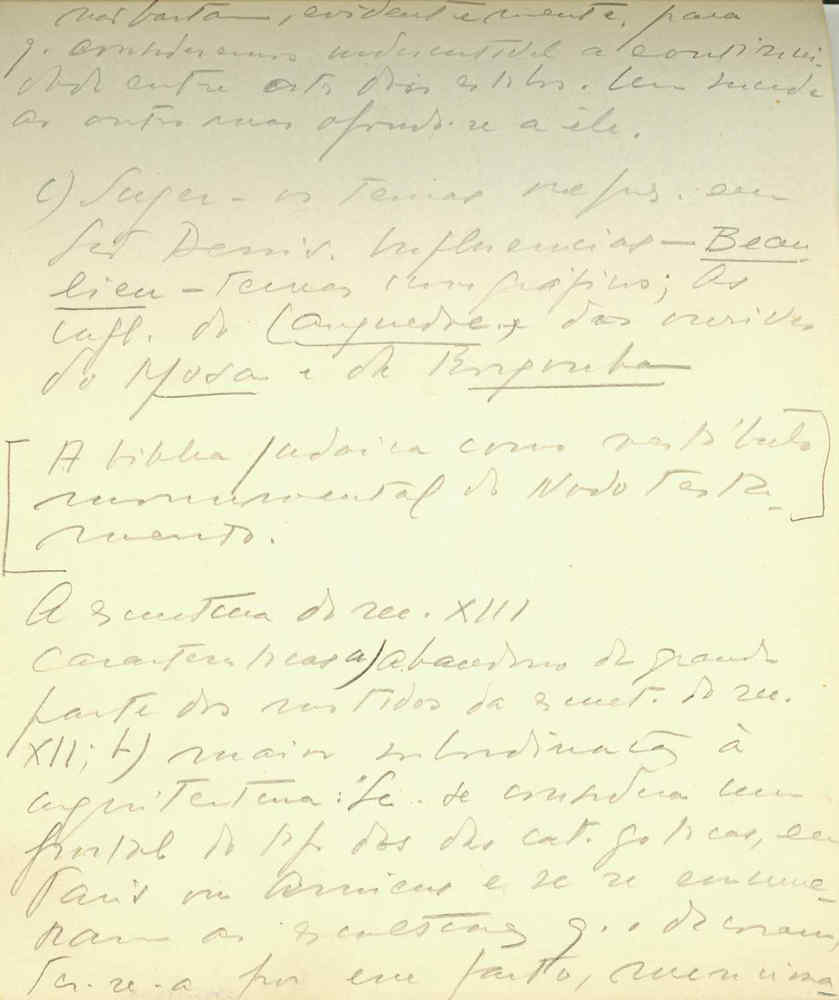 não bastam, evidentemente, para
q. consideremos indiscutível a continui-
dade entre estes dois estilos. Um sucede
ao outro mas opondo-se a êle.
c) Suger - os temas repres. em
St Denis. Influencias - Beau
lieu - temas iconográficos; As
infl. do Languedoc, dos ourives
do Mosa e da Borgonha
A biblia judaica como vestíbulo
monumental do Novo Testa-
mento.
A escultura do sec. XIII
Caracteristicas a) abandono de grande
parte dos partidos da escult. do sec.
XII; b) maior subordinação à
arquitectura: "Se se considera um
portal do tipo dos das cat. goticas, em
Paris ou Amiens e se se enume-
ram as esculturas q. o decoram,
ter-se-a por em